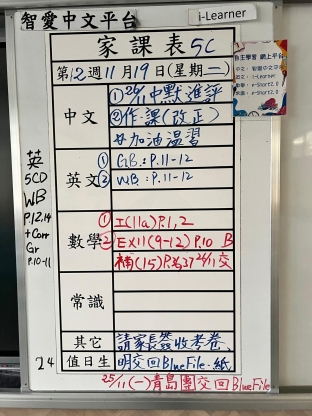 智愛中文平台
i-Learner
家課表 5C
第12週11月19日(星期二)
中文
①26/11中默進評
②作課(改正)
好加油溫習
英文
① G.B.: P.11-12
② W.B.: P.11-12
數學
① I(11a)P.1, 2
② EX11(9-12)P.10 B
補(15)P.36,37 26/11交
常識
其它
請家長簽收考卷、
值日生
明交回BlueFile.紙
25/11(一)青島團交回BlueFile
24
英
5CD
WB
P.12,14
+ Corr
Gr
P.10-11
自主學習 網上平台
中文:智愛中文平台